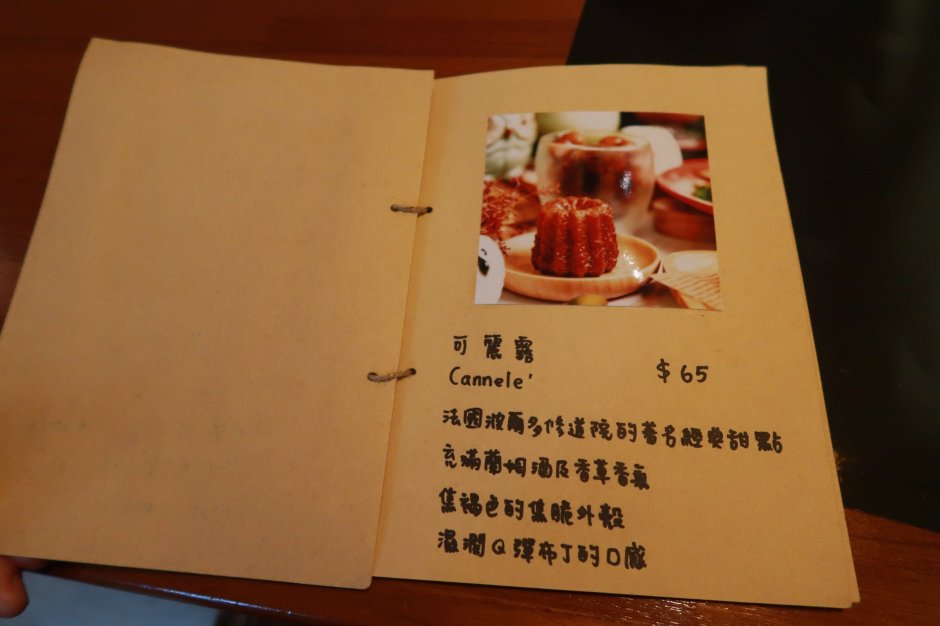 可麗露
Cannele' $65
法國波爾多修道院的著名經典甜點
充滿蘭姆酒及香草香氣
焦褐色的焦脆外殼
濕潤Q彈布丁的口感